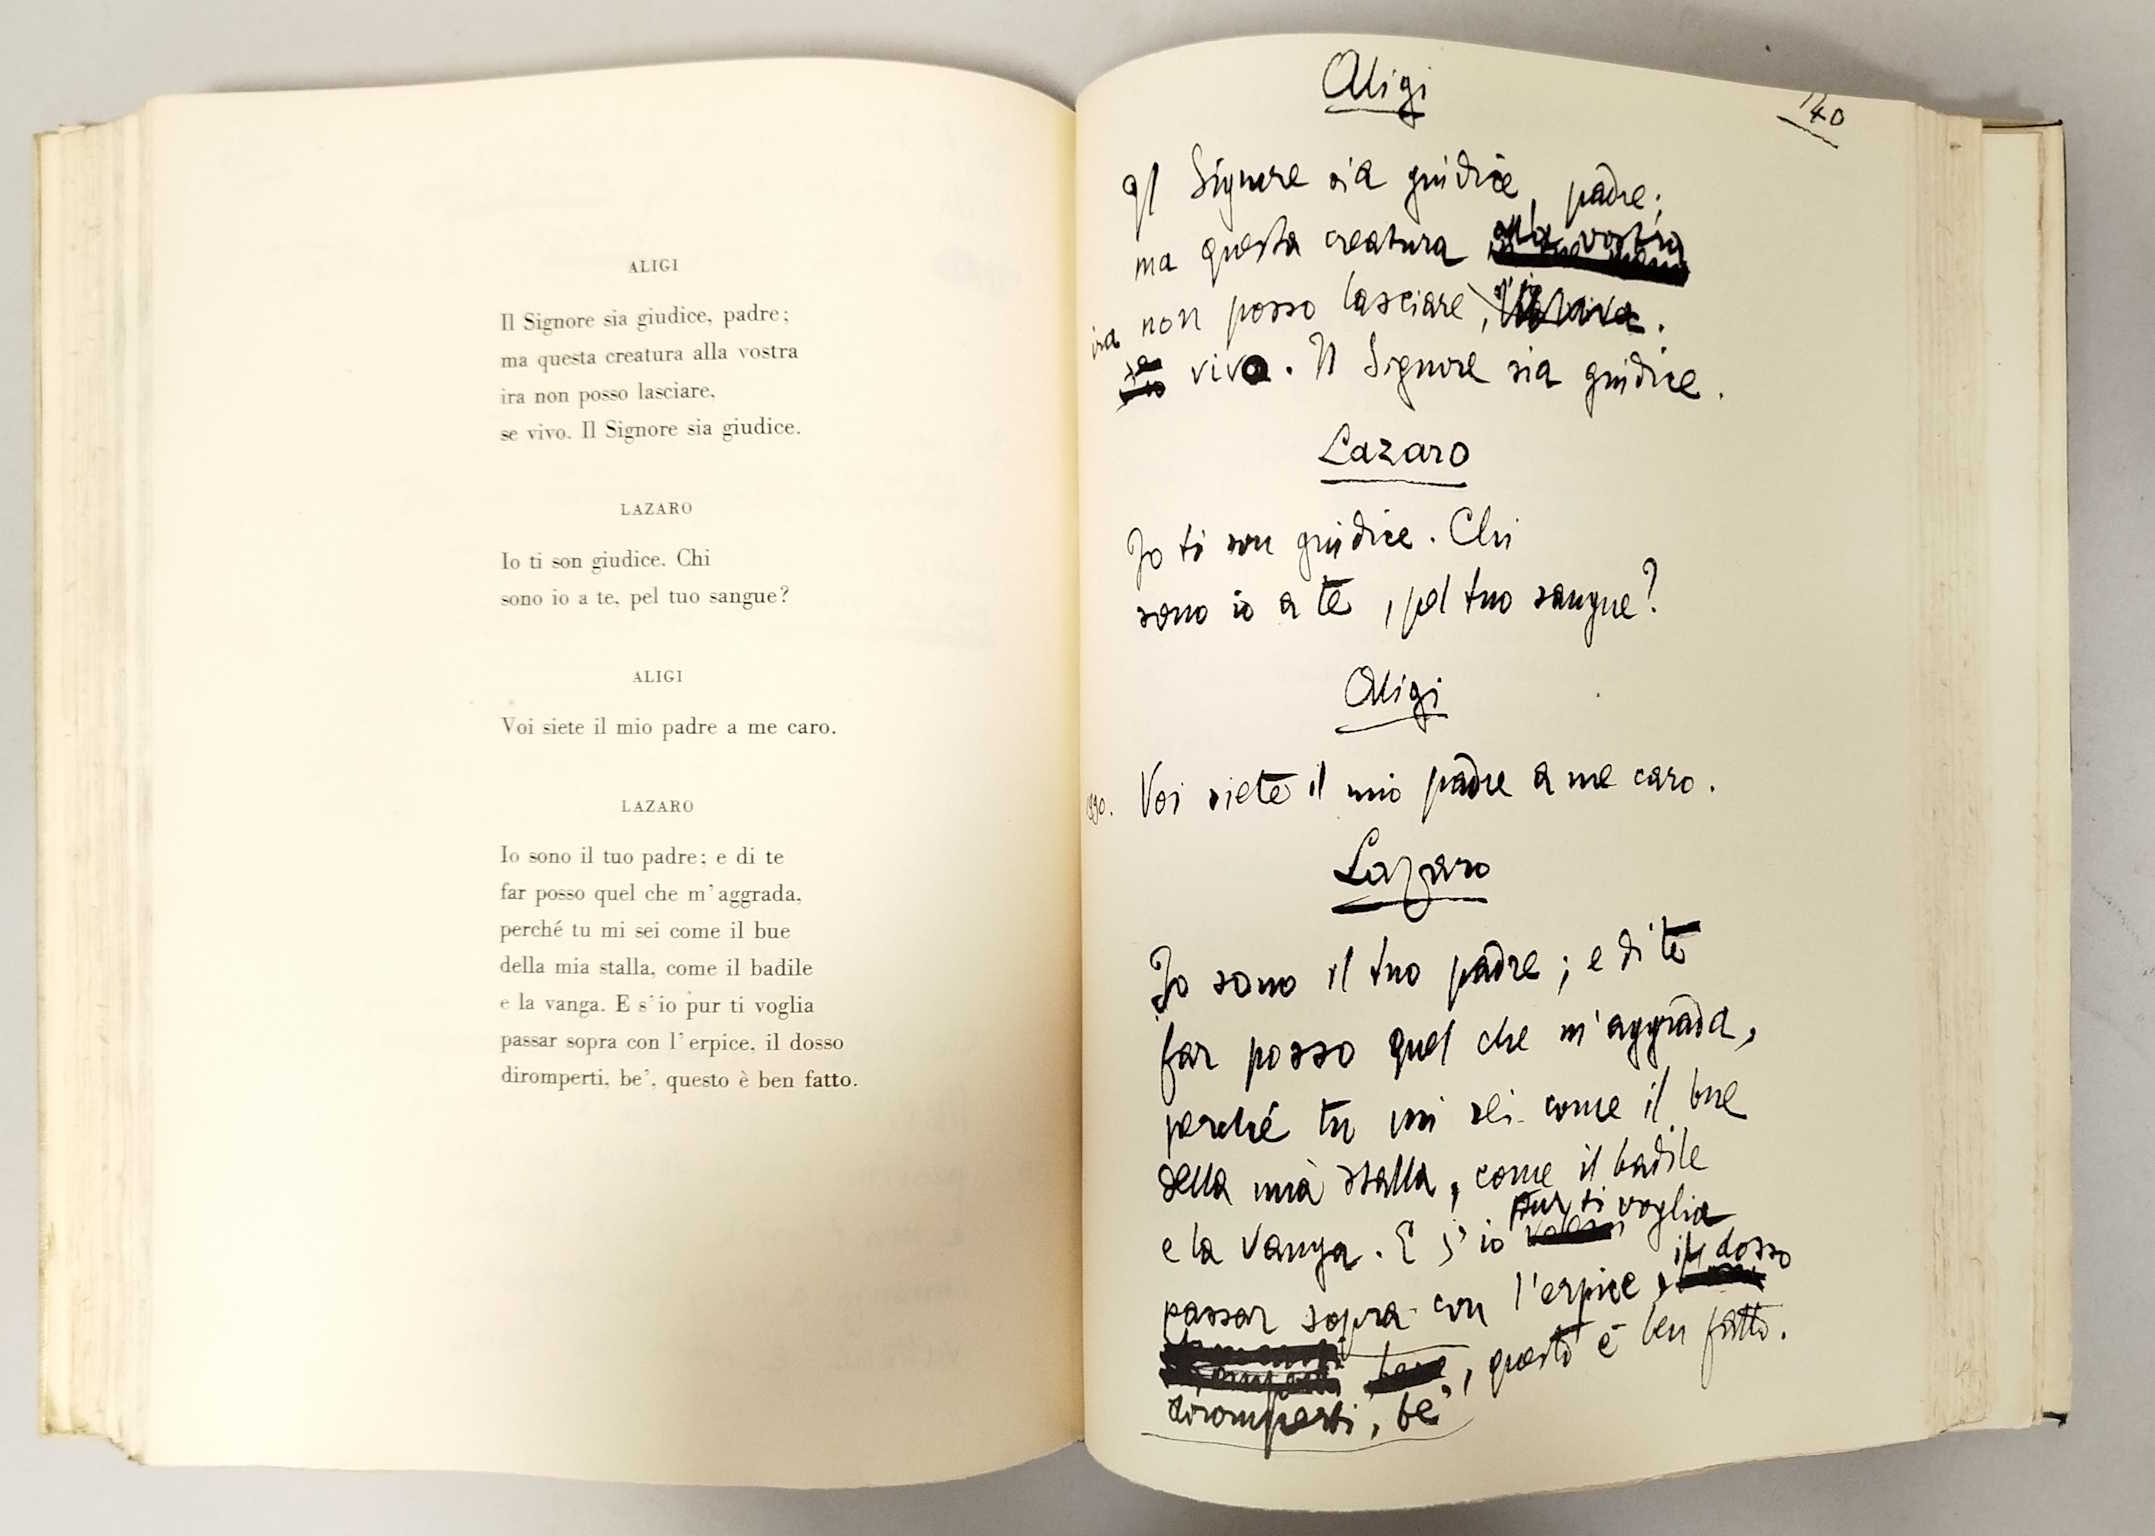 ALIGI
Il Signore sia giudice, padre;
ma questa creatura alla vostra
ira non posso lasciare,
se vivo. Il Signore sia giudice.
LAZARO
Io ti son giudice. Chi
sono io a te, pel tuo sangue?
ALIGI
Voi siete il mio padre a me caro.
LAZARO
Io sono il tuo padre; e di te
far posso quel che m'aggrada,
perché tu mi sei come il bue
della mia stalla, come il badile
e la vanga. E s'io pur ti voglia
passar sopra con l'erpice, il dosso
diromperti, be', questo è ben fatto.
140
Aligi
Il Signore sia giudice, padre;
ma questa creatura alla vostra
ira non posso lasciare,
se vivo. Il Signore sia giudice.
Lazaro
Io ti son giudice. Chi
sono io a te, pel tuo sangue?
Aligi
Voi siete il mio padre a me caro.
Lazaro
Io sono il tuo padre; e di te
far posso quel che m'aggrada,
perché tu mi sei come il bue
della mia stalla, come il badile
e la vanga. E s'io pur ti voglia
passar sopra con l'erpice, il dosso
diromperti, be', questo è ben fatto.